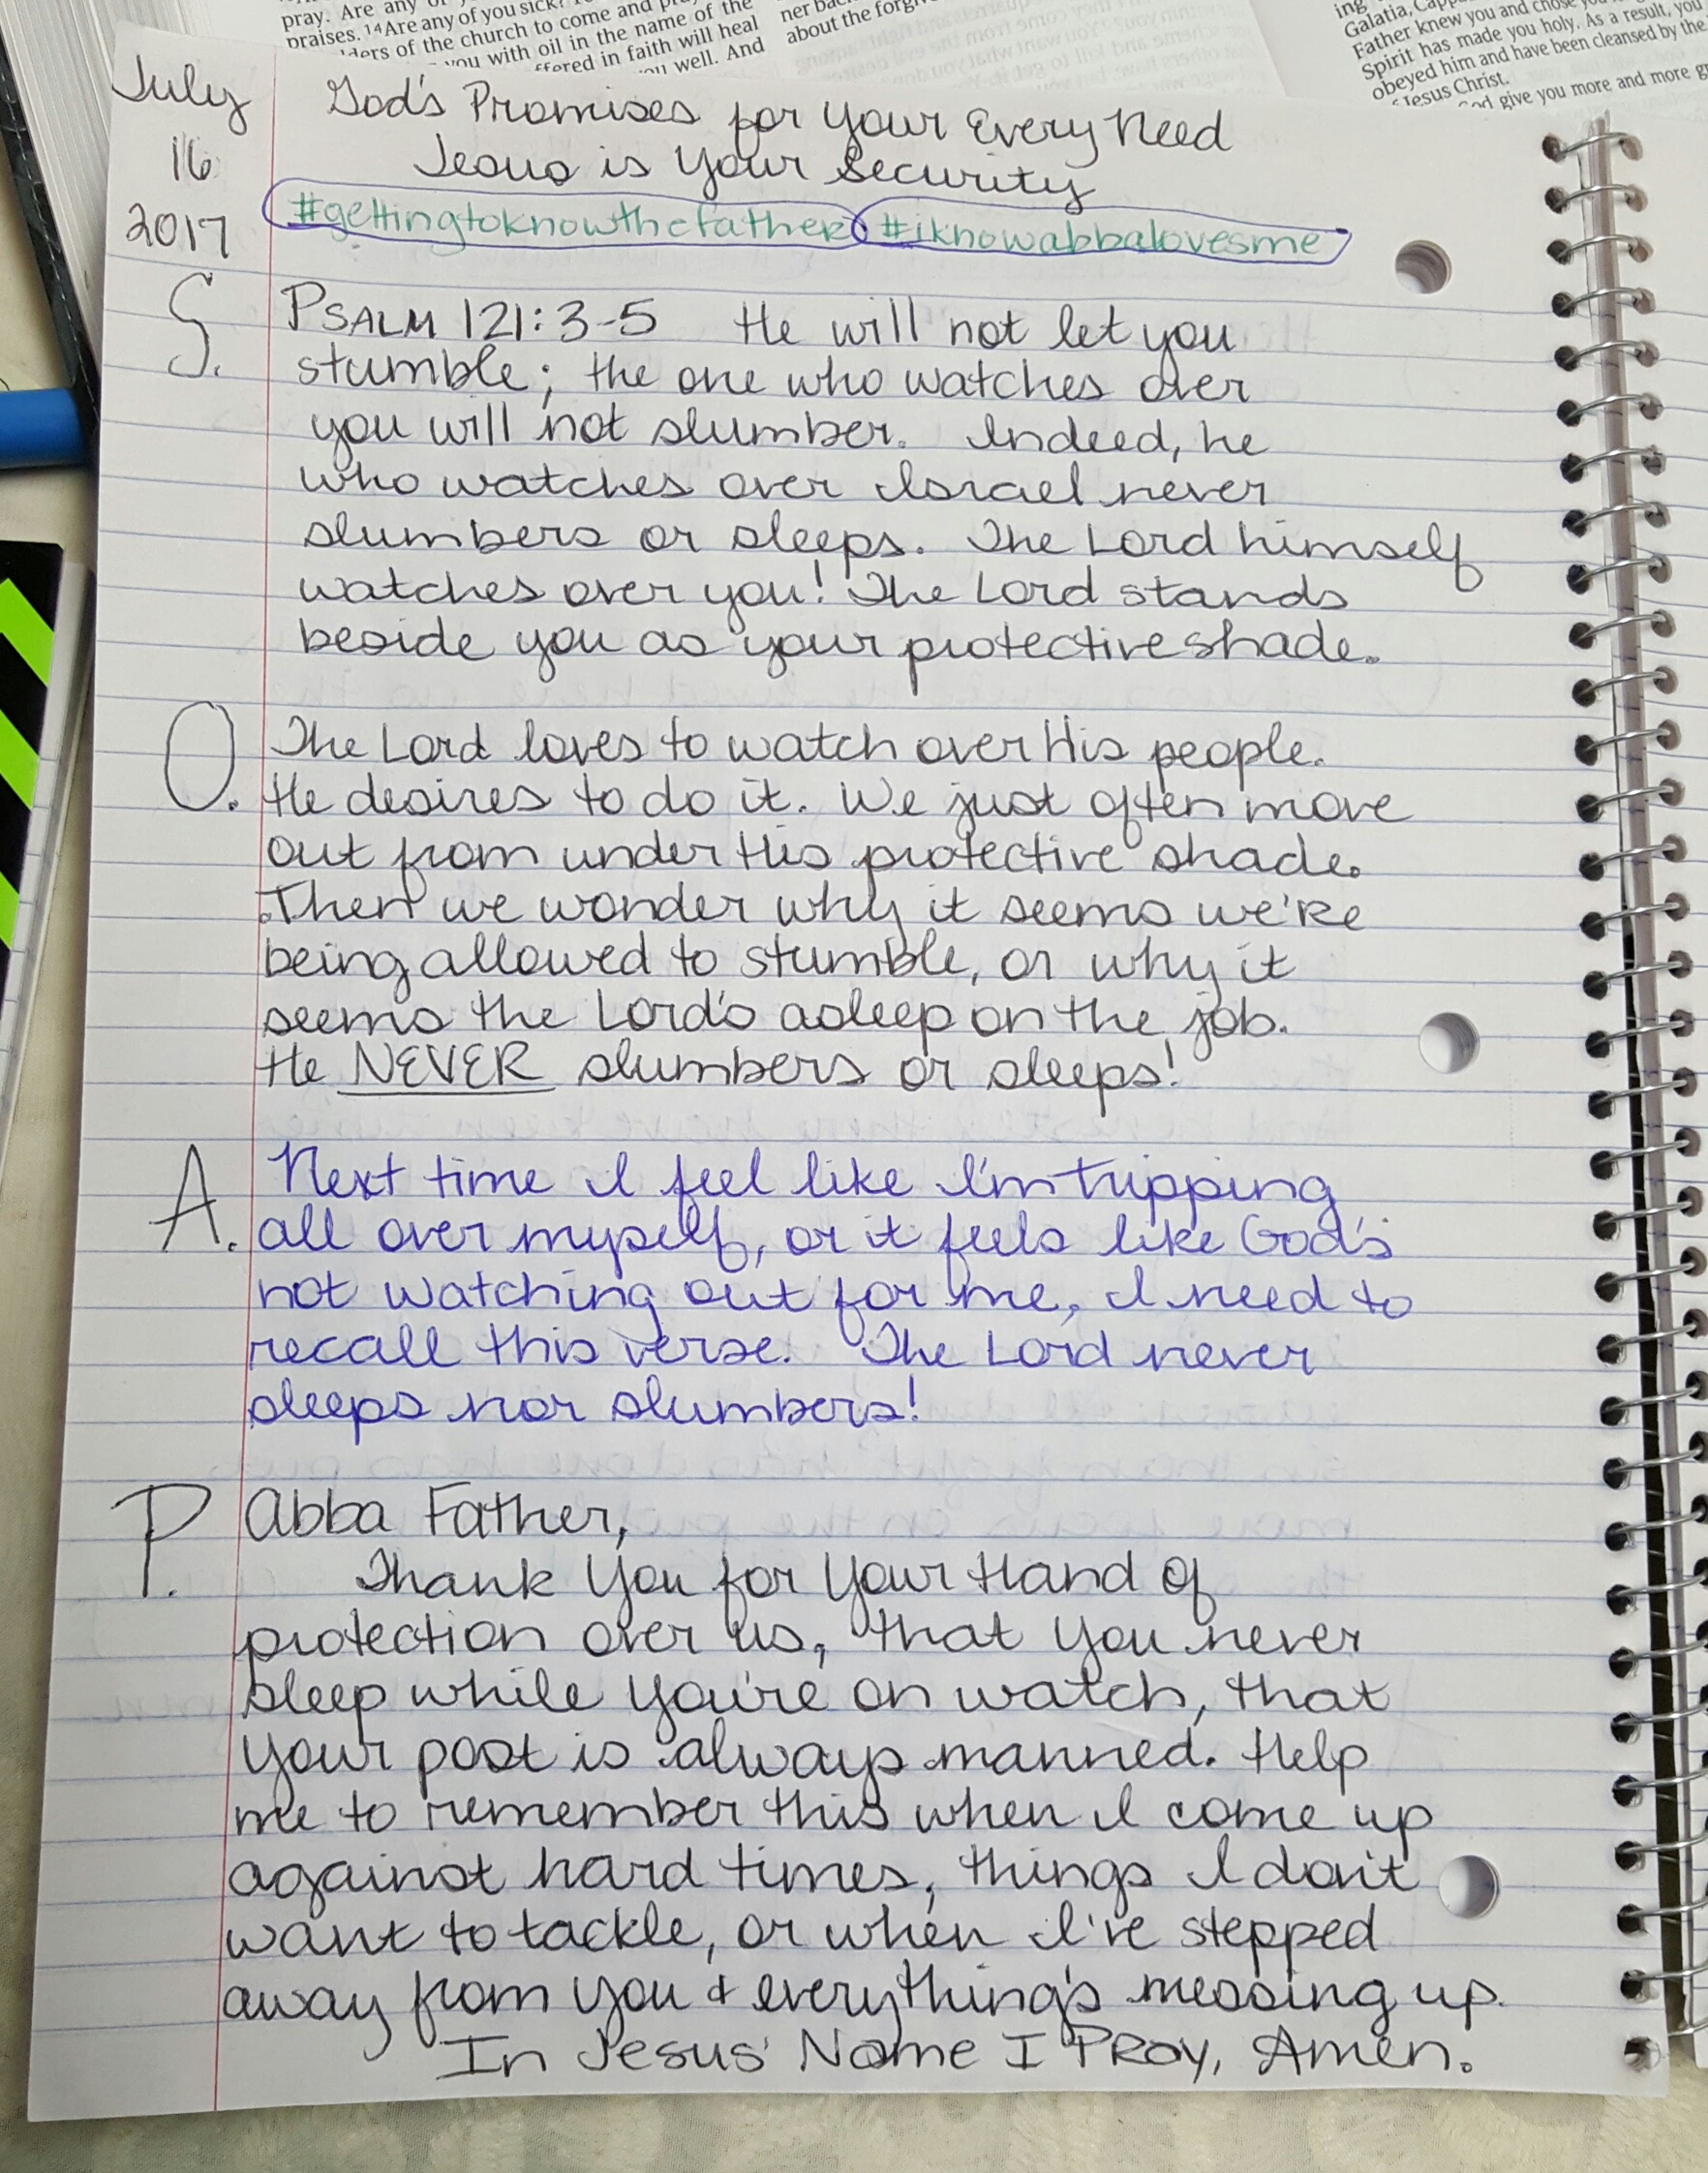 pray. Are any of you
praises. 14 Are any of you sick?
ders of the church to come and
you with oil in the name of the
ffered in faith will heal
you well. And
about the
ing
Galatia,
Father knew you and chose you
Spirit has made you holy. As a result, you
obeyed him and have been cleansed by the
Jesus Christ.
God give you more and more
July
16
2017
God's Promises for Your Every Need
Jesus is Your Security
#gettingtoknowthefather #iknowabbalovesme
S. PSALM 121:3-5 He will not let you
stumble; the one who watches over
you will not slumber. Indeed, he
who watches over Israel never
slumbers or sleeps. The Lord himself
watches over you! The Lord stands
beside you as your protective shade.
O. The Lord loves to watch over His people.
He desires to do it. We just often move
out from under His protective shade.
Then we wonder why it seems we're
being allowed to stumble, or why it
seems the Lord's asleep on the job.
He NEVER slumbers or sleeps!
A. Next time I feel like I'm tripping
all over myself, or it feels like God's
not watching out for me, I need to
recall this verse. The Lord never
sleeps nor slumbers!
P. Abba Father,
Thank You for Your Hand of
protection over us, that You never
sleep while You're on watch, that
Your post is always manned. Help
me to remember this when I come up
against hard times, things I don't
want to tackle, or when I've stepped
away from You & everything's messing up.
In Jesus' Name I Pray, Amen.